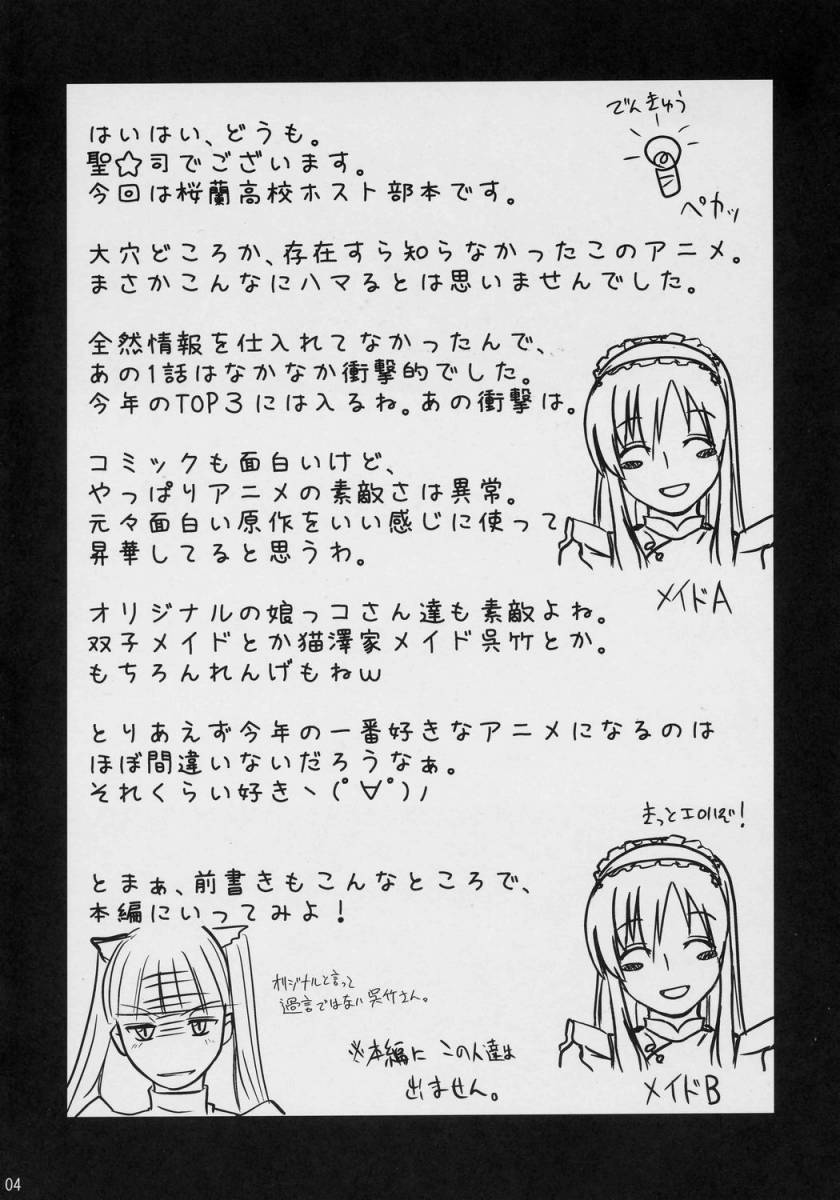 でんきゅう
ペカッ
はいはい、どうも。
聖☆司でございます。
今回は桜蘭高校ホスト部本です。
大穴どころか、存在すら知らなかったこのアニメ。
まさかこんなにハマるとは思いませんでした。
全然情報を仕入れてなかったんで、
あの1話はなかなか衝撃的でした。
今年のTOP3には入るね。あの衝撃は。
コミックも面白いけど、
やっぱりアニメの素敵さは異常。
元々面白い原作をいい感じに使って
昇華してると思うわ。
メイドA
オリジナルの娘っコさん達も素敵よね。
双子メイドとか猫澤家メイド呉竹とか。
もちろんれんげもねw
とりあえず今年の一番好きなアニメになるのは
ほぼ間違いないだろうなぁ。
それくらい好きヽ(ﾟ∀ﾟ)ﾉ
きっとエロいぞ!
とまぁ、前書きもこんなところで、
本編にいってみよ!
オリジナルと言って
過言ではない呉竹さん。
※本編に この人達は
出ません。
メイドB
04